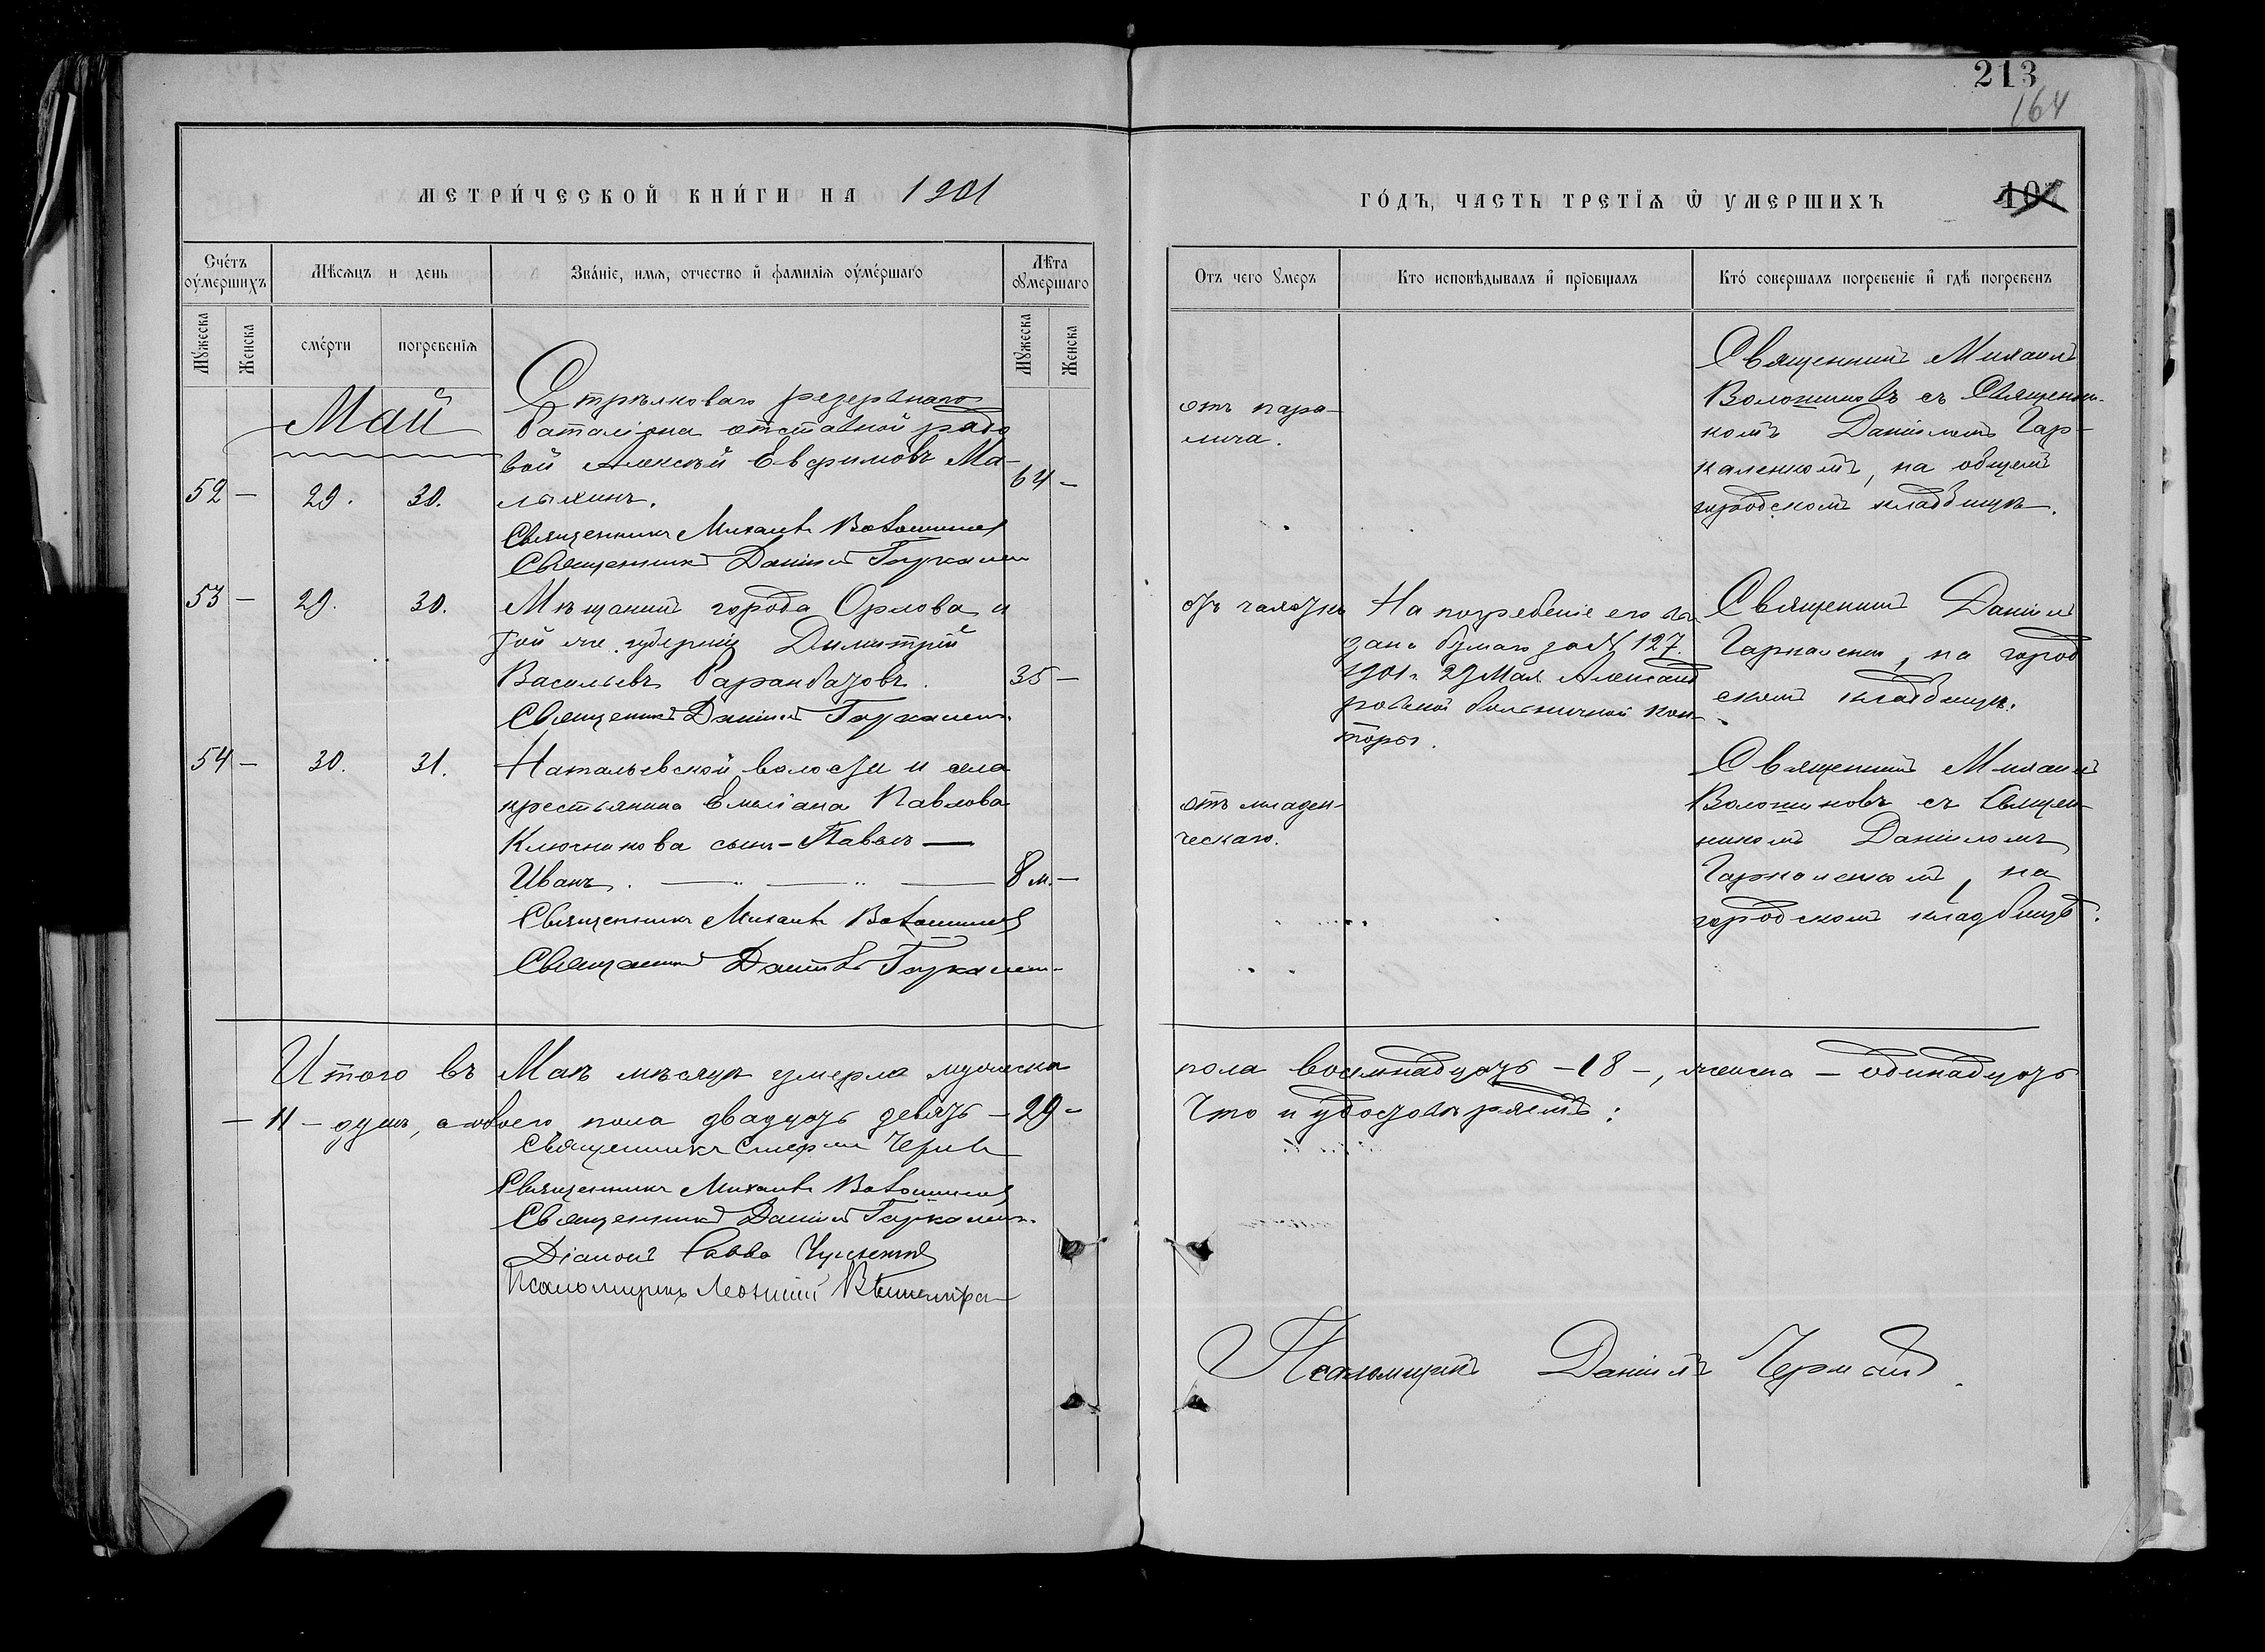 213
164
МЕТРИ́ЧЕСКОЙ КНИ́ГИ НА 1901
ГО́ДЪ, ЧАСТЬ ТРЕТІѦ Ѿ УМЕРШИХЪ
107
Сче́тъ оу҆ме́ршихъ
Мѣсѧцъ и день
Зва́ніе, имѧ, отчество и҆ фамилія оу҆ме́ршаго
Лѣта оу҆ме́ршаго
Мꙋжеска
Женска
сме́рти
погребенїѧ
Мꙋжеска
Женска
Отъ чего ꙋмеръ
Кто исповѣдывалъ и҆ прїобщалъ
Кто́ совершалъ погребенїе и҆ гдѣ̀ погребенъ
Май
52 — 29. 30.
Стрѣлковаго резервнаго
баталіона отставной рядо
вой Алексѣй Евфимовъ Ма-
лыхинъ.
64 —
Священникъ Михаилъ Волошиновъ
Священникъ Даніилъ Гаркален
отъ пара-
лича.
Священникъ Михаилъ
Волошиновъ съ Священни-
комъ Даніиломъ Гар-
каленкомъ, на общемъ
городскомъ кладбищѣ.
53 — 29. 30.
Мѣщанинъ города Орлова и
той же губерніи Димитрій
Васильевъ Барандазовъ.
35 —
Священникъ Даніилъ Гаркален
отъ чахотки
На погребеніе его вы-
дана бумага за № 127.
1901 г. 29 Мая Александ
ровской больничной кон-
торы.
Священникъ Даніилъ
Гаркаленко, на город
скомъ кладбищѣ.
54 — 30. 31.
Натальевской волости и села
крестьянина Емиліана Павлова
Ключникова сынъ — Павелъ —
Иванъ.
8 м. —
Священникъ Михаилъ Волошиновъ
Священникъ Даніилъ Гаркален
отъ младен-
ческаго.
Священникъ Михаилъ
Волошиновъ съ Священ-
никомъ Даніиломъ
Гаркаленкомъ, на
городскомъ кладбищѣ.
Итого въ Маѣ мѣсяцѣ умерло мужеска
пола восемнадцать — 18 —, женска — одинадцать
— 11 — душъ, а обоего пола двадцать девять — 29 —
Что и удостовѣряемъ:
Священникъ
Священникъ Михаилъ Волошиновъ
Священникъ Даніилъ Гаркален
Діаконъ Савва
Псаломщикъ
Псаломщикъ Даніилъ